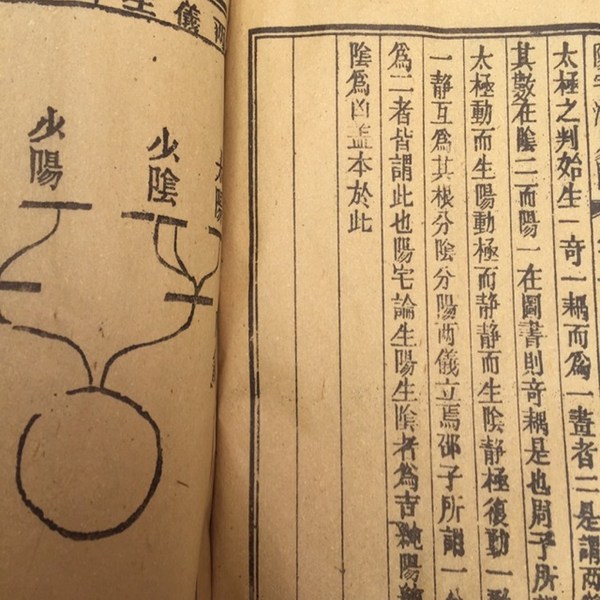 太極之判始生一奇一耦而爲一畫者二是謂兩
其數在陰二而陽一在圖書則奇耦是也周子所
太極動而生陽動極而静静而生陰静極復動一
一静互爲其根分陰分陽兩儀立焉邵子所謂一分
爲二者皆謂此也陽宅論生陽生陰者爲吉純陽純
陰爲凶蓋本於此
兩儀生
太陽
少陰
少陽